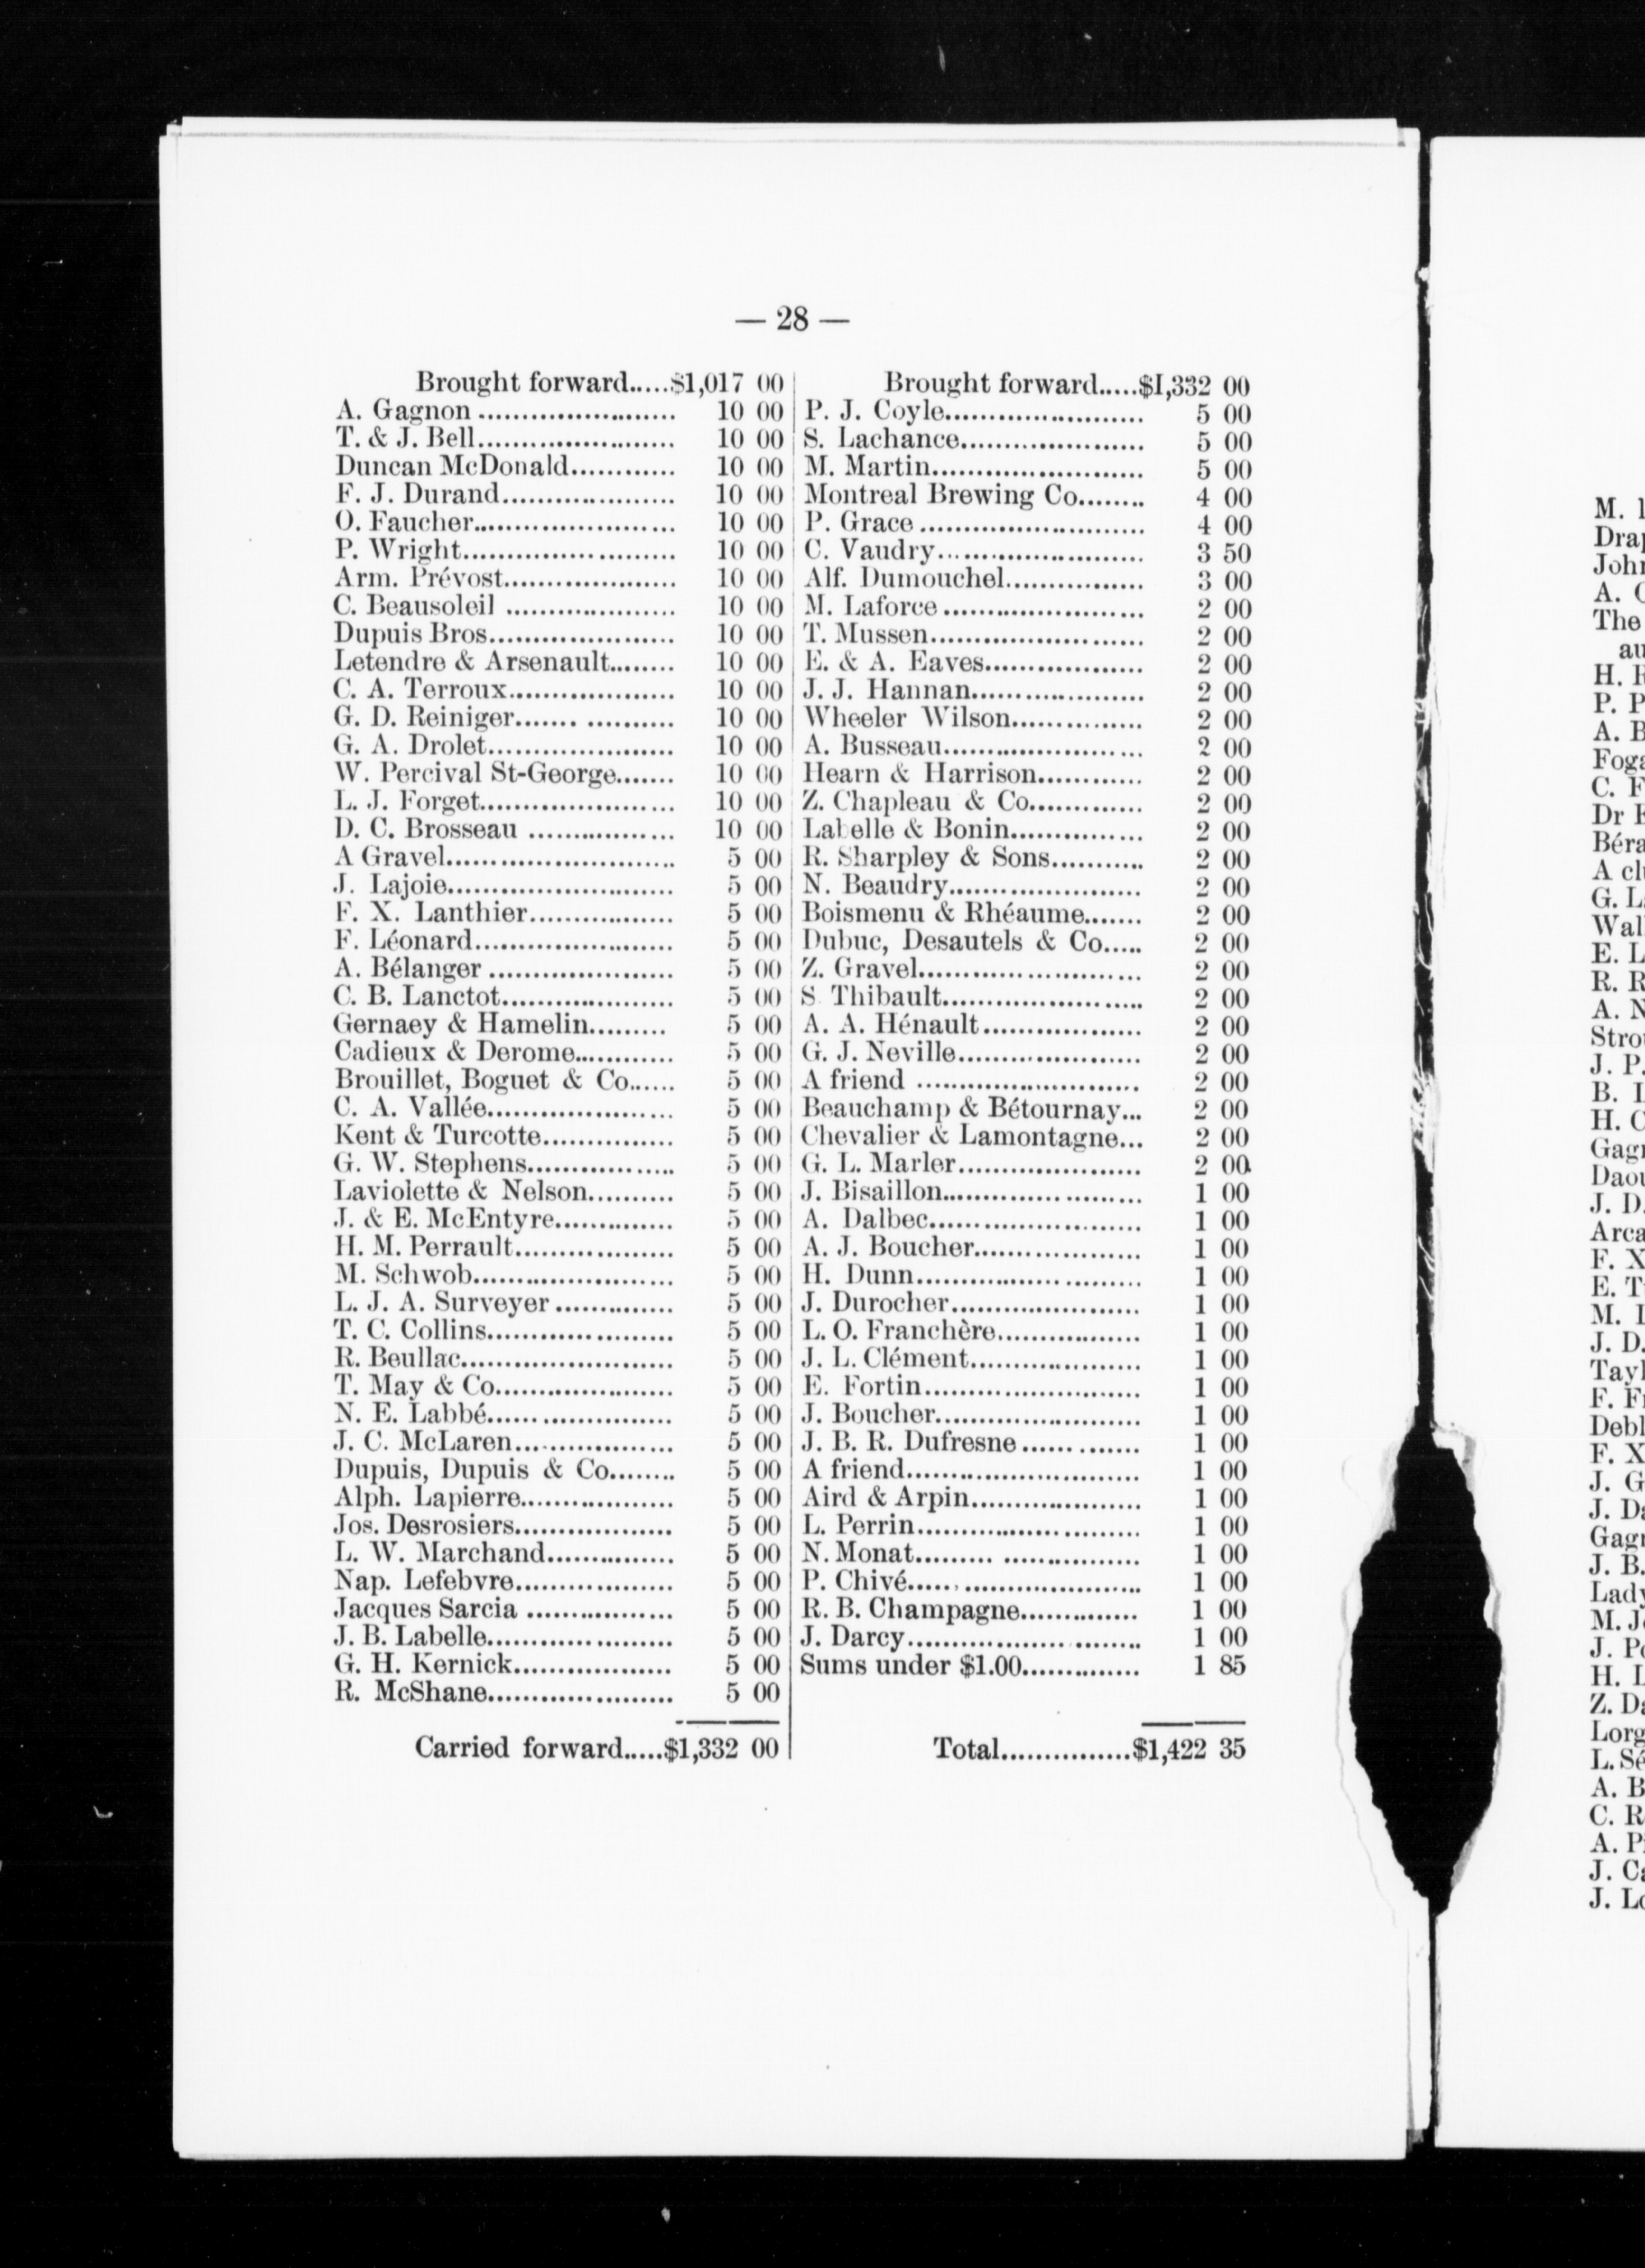 — 28 —
Brought forward.....$1,017 00
A. Gagnon ........................ 10 00
T. & J. Bell........................ 10 00
Duncan McDonald............ 10 00
F. J. Durand.................... 10 00
O. Faucher....................... 10 00
P. Wright......................... 10 00
Arm. Prévost.................... 10 00
C. Beausoleil .................... 10 00
Dupuis Bros...................... 10 00
Letendre & Arsenault........ 10 00
C. A. Terroux................... 10 00
G. D. Reiniger....... .......... 10 00
G. A. Drolet...................... 10 00
W. Percival St-George....... 10 00
L. J. Forget....................... 10 00
D. C. Brosseau ................. 10 00
A Gravel........................... 5 00
J. Lajoie........................... 5 00
F. X. Lanthier................. 5 00
F. Léonard....................... 5 00
A. Bélanger ...................... 5 00
C. B. Lanctot.................... 5 00
Gernaey & Hamelin......... 5 00
Cadieux & Derome............ 5 00
Brouillet, Boguet & Co...... 5 00
C. A. Vallée...................... 5 00
Kent & Turcotte............... 5 00
G. W. Stephens................. 5 00
Laviolette & Nelson.......... 5 00
J. & E. McEntyre.............. 5 00
H. M. Perrault................... 5 00
M. Schwob........................ 5 00
L. J. A. Surveyer .............. 5 00
T. C. Collins...................... 5 00
R. Beullac......................... 5 00
T. May & Co..................... 5 00
N. E. Labbé...................... 5 00
J. C. McLaren................... 5 00
Dupuis, Dupuis & Co........ 5 00
Alph. Lapierre.................. 5 00
Jos. Desrosiers................... 5 00
L. W. Marchand............... 5 00
Nap. Lefebvre................... 5 00
Jacques Sarcia ................. 5 00
J. B. Labelle...................... 5 00
G. H. Kernick................... 5 00
R. McShane...................... 5 00
Carried forward.....$1,332 00
Brought forward.....$1,332 00
P. J. Coyle....................... 5 00
S. Lachance...................... 5 00
M. Martin......................... 5 00
Montreal Brewing Co........ 4 00
P. Grace .......................... 4 00
C. Vaudry......................... 3 50
Alf. Dumouchel................ 3 00
M. Laforce ........................ 2 00
T. Mussen......................... 2 00
E. & A. Eaves................... 2 00
J. J. Hannan.................... 2 00
Wheeler Wilson............... 2 00
A. Busseau........................ 2 00
Hearn & Harrison............ 2 00
Z. Chapleau & Co............. 2 00
Labelle & Bonin............... 2 00
R. Sharpley & Sons........... 2 00
N. Beaudry....................... 2 00
Boismenu & Rhéaume....... 2 00
Dubuc, Desautels & Co..... 2 00
Z. Gravel.......................... 2 00
S. Thibault....................... 2 00
A. A. Hénault.................. 2 00
G. J. Neville..................... 2 00
A friend .......................... 2 00
Beauchamp & Bétournay... 2 00
Chevalier & Lamontagne... 2 00
G. L. Marler..................... 2 00
J. Bisaillon....................... 1 00
A. Dalbec......................... 1 00
A. J. Boucher................... 1 00
H. Dunn........................... 1 00
J. Durocher...................... 1 00
L. O. Franchère................ 1 00
J. L. Clément................... 1 00
E. Fortin.......................... 1 00
J. Boucher........................ 1 00
J. B. R. Dufresne ............. 1 00
A friend........................... 1 00
Aird & Arpin.................... 1 00
L. Perrin.......................... 1 00
N. Monat......... ................ 1 00
P. Chivé........................... 1 00
R. B. Champagne.............. 1 00
J. Darcy........................... 1 00
Sums under $1.00.............. 1 85
Total...............$1,422 35